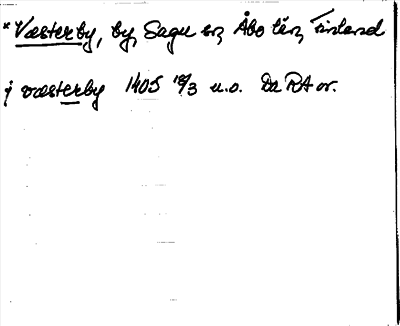 *Væsterby, by, Sagu sn, Åbo län, Finland
j væsterby 1405 18/3 u.o. Da RA or.